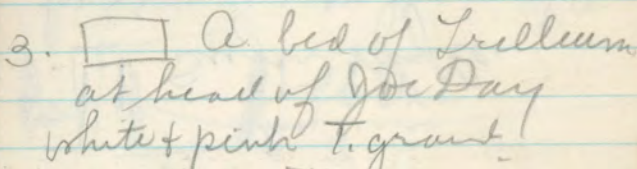 3. A bed of Trillium
at head of Joe Day
white & pink T. grand.